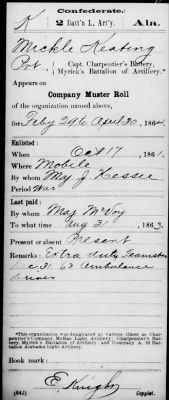 Confederate.
K 2 Batt'n L. Art'y. Ala.
Mickle Keating
Pvt, Capt. Charpentier's Battery,
Myrick's Battalion of Artillery.*
Appears on
Company Muster Roll
of the organization named above,
for Feby 29, & April 30, 1864.
Enlisted:
When Oct 17, 186 .
Where Mobile
By whom Maj J. Hessee
Period War
Last paid:
By whom Maj McVoy
To what time Aug 31, 1863.
Present or absent Present
Remarks: Extra duty Teamster
Dec 31 63 Ambulance
Driver
*This organization was designated at various times as Char-
pentier's Company Mobile Light Artillery; Charpentier's Bat-
tery, Myrick's Battalion of Artillery; and Company A, 2d Bat-
talion Alabama Light Artillery.
Book mark:
E. Knight
(642) Copyist.